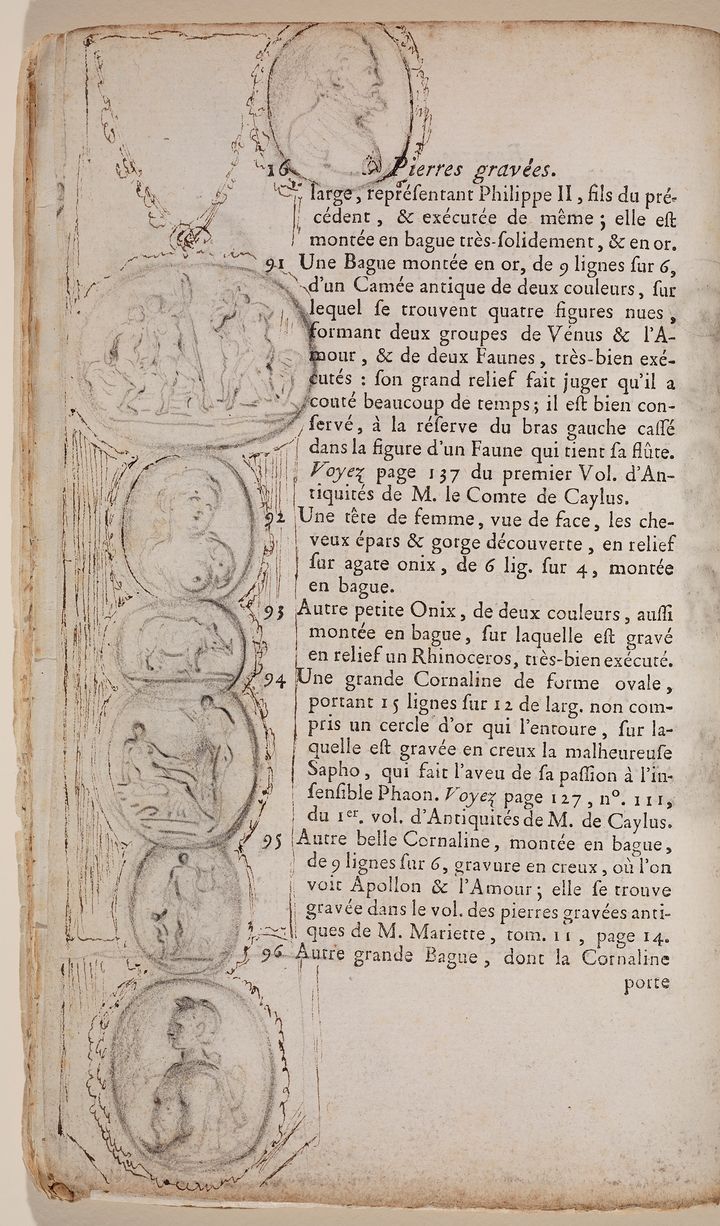 16 Pierres gravées.
large, repréſentant Philippe II, fils du pré-
cédent, & exécutée de même; elle eſt
montée en bague très-ſolidement, & en or.
91 Une Bague montée en or, de 9 lignes ſur 6,
d'un Camée antique de deux couleurs, ſur
lequel ſe trouvent quatre figures nues,
formant deux groupes de Vénus & l'A-
mour, & de deux Faunes, très-bien exé-
cutés : ſon grand relief fait juger qu'il a
couté beaucoup de temps; il eſt bien con-
ſervé, à la réſerve du bras gauche caſſé
dans la figure d'un Faune qui tient ſa flûte.
Voyez page 137 du premier Vol. d'An-
tiquités de M. le Comte de Caylus.
92 Une tête de femme, vue de face, les che-
veux épars & gorge découverte, en relief
ſur agate onix, de 6 lig. ſur 4, montée
en bague.
93 Autre petite Onix, de deux couleurs, auſſi
montée en bague, ſur laquelle eſt gravé
en relief un Rhinoceros, très-bien exécuté.
94 Une grande Cornaline de forme ovale,
portant 15 lignes ſur 12 de larg. non com-
pris un cercle d'or qui l'entoure, ſur la-
quelle eſt gravée en creux la malheureuſe
Sapho, qui fait l'aveu de ſa paſſion à l'in-
ſenſible Phaon. Voyez page 127, nº. III,
du 1er. vol. d'Antiquités de M. de Caylus.
95 Autre belle Cornaline, montée en bague,
de 9 lignes ſur 6, gravure en creux, où l'on
voit Apollon & l'Amour; elle ſe trouve
gravée dans le vol. des pierres gravées anti-
ques de M. Mariette, tom. II, page 14.
96 Autre grande Bague, dont la Cornaline
porte